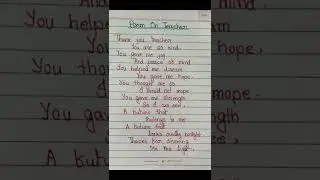 Poem On Teacher
Thank you teacher
You are so kind.
You gave me joy
And peace of mind
You helped me discover
You gave me hope.
You thought me so
I would not mope.
You gave me strength
So I can see,
A future that
belongs to me
A future that
looks really bright
Thanks for shining
me the light.